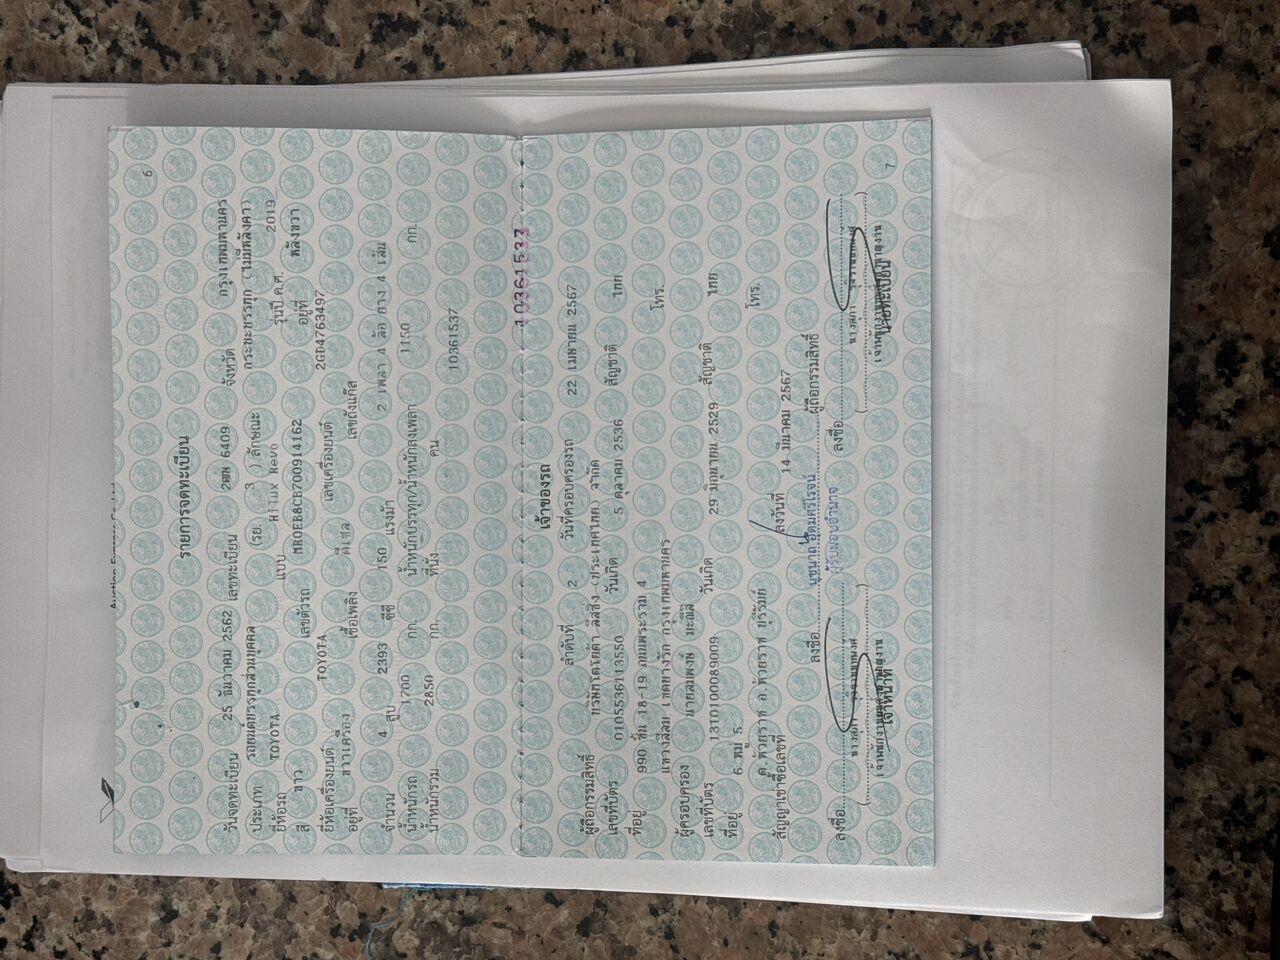 6
รายการจดทะเบียน
วันจดทะเบียน 25 ธันวาคม 2562 เลขทะเบียน 2ฒฒ 6409 จังหวัด กรุงเทพมหานคร
ประเภท รถยนต์บรรทุกส่วนบุคคล (รย. 3 ) ลักษณะ กระบะบรรทุก (ไม่มีหลังคา)
ยี่ห้อรถ TOYOTA แบบ Hilux Revo รุ่นปี ค.ศ. 2019
สี ขาว เลขตัวรถ MR0EB8CB700914162 อยู่ที่ หลังขวา
ยี่ห้อเครื่องยนต์ TOYOTA เลขเครื่องยนต์ 2GD4763497
อยู่ที่ ขวาเครื่อง เชื้อเพลิง ดีเซล เลขถังแก๊ส
จำนวน 4 สูบ 2393 ซีซี 150 แรงม้า 2 เพลา 4 ล้อ ยาง 4 เส้น
น้ำหนักรถ 1700 กก. น้ำหนักบรรทุก/น้ำหนักลงเพลา 1150 กก.
น้ำหนักรวม 2850 กก. ที่นั่ง คน 10361537
10361537
เจ้าของรถ
ลำดับที่ 2 วันที่ครอบครองรถ 22 เมษายน 2567
ผู้ถือกรรมสิทธิ์ บริษัทโตโยต้า ลีสซิ่ง (ประเทศไทย) จำกัด
เลขที่บัตร 0105536113550 วันเกิด 5 ตุลาคม 2536 สัญชาติ ไทย
ที่อยู่ 990 ชั้น 18-19 ถนนพระราม 4
แขวงสีลม เขตบางรัก กรุงเทพมหานคร โทร.
ผู้ครอบครอง นายสมพงษ์ มะณีสี
เลขที่บัตร 1310100089009 วันเกิด 29 มิถุนายน 2529 สัญชาติ ไทย
ที่อยู่ 6 หมู่ 5
ต.ห้วยราช อ.ห้วยราช บุรีรัมย์ โทร.
สัญญาเช่าซื้อเลขที่ ลงวันที่ 14 มีนาคม 2567
ลงชื่อ ผู้ถือกรรมสิทธิ์
ผู้รับมอบอำนาจ
ลงชื่อ ลงชื่อ
เจ้าหน้าที่ นายทะเบียน
7